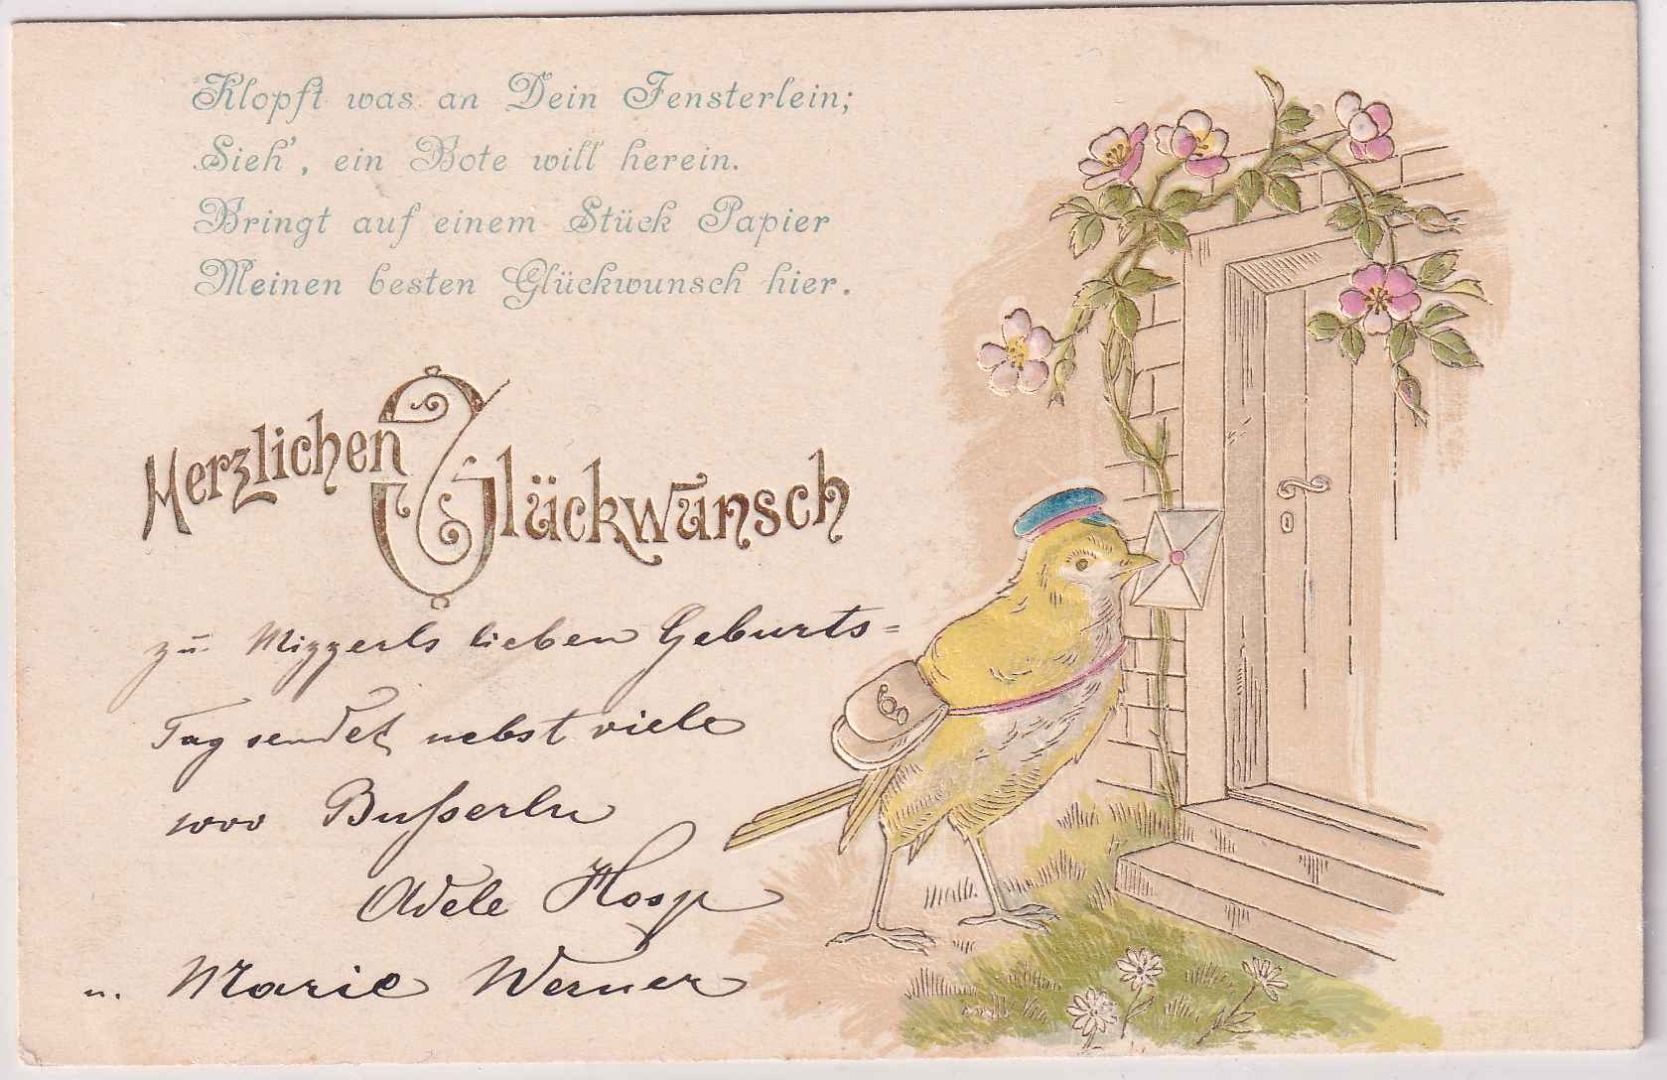 Klopft was an Dein Fensterlein;
Sieh', ein Bote will herein.
Bringt auf einem Stück Papier
Meinen besten Glückwunsch hier.
Herzlichen Glückwunsch
zu Mizzerls lieben Geburts=
Tag sendet nebst viele
1000 Busserln
Adele Hosp
u. Marie Werner